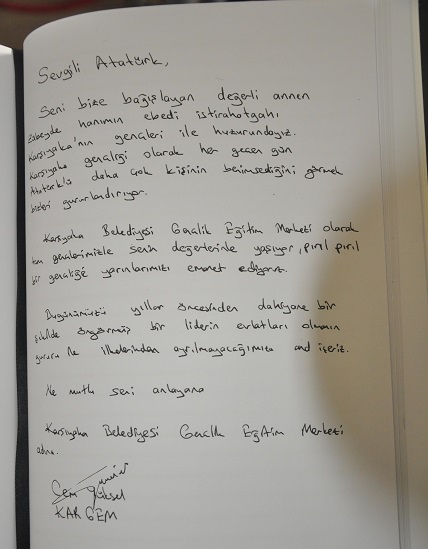 Sevgili Atatürk,
Seni bize bağışlayan değerli annen
Zübeyde hanımın ebedi istirahatgahı
Karşıyaka'nın gençleri ile huzurundayız.
Karşıyaka gençliği olarak her geçen gün
Atatürk'ü daha çok kişinin benimsediğini görmek
bizleri gururlandırıyor.
Karşıyaka Belediyesi Gençlik Eğitim Merkezi olarak
tüm gençlerimizle senin değerlerinle yaşıyor, pırıl pırıl
bir gençliğe yarınlarımızı emanet ediyoruz.
Bugünümüzü yıllar öncesinden dahiyane bir
şekilde öngörmüş bir liderin evlatları olmanın
gururu ile ilkelerinden ayrılmayacağımıza and içeriz.
Ne mutlu seni anlayana
Karşıyaka Belediyesi Gençlik Eğitim Merkezi
adına.
Cem
KARGEM